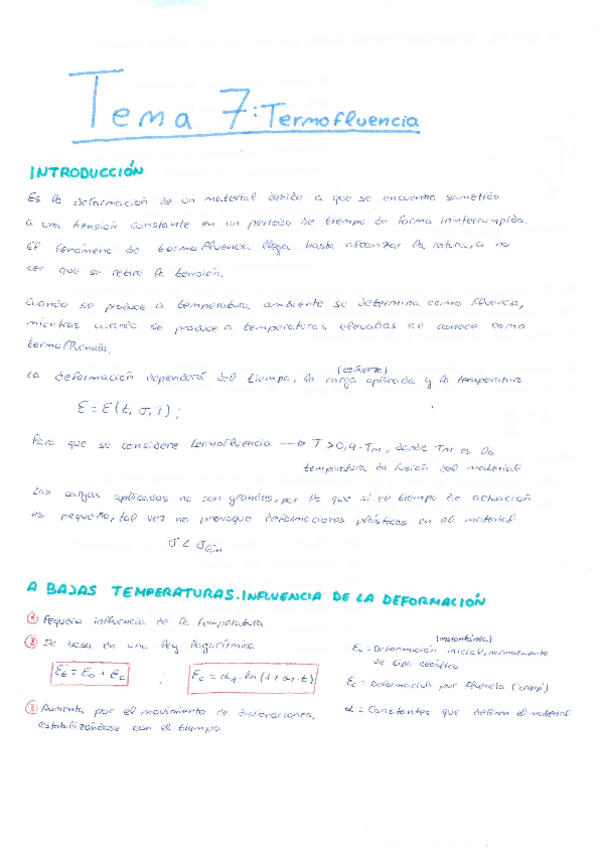 Tema 7: Termofluencia
INTRODUCCIÓN
Es la deformación de un material debido a que se encuentra sometido
a una tensión constante en un periodo de tiempo de forma ininterrumpida.
El fenómeno de termofluencia llega hasta alcanzar la rotura, a no
ser que se retire la tensión.
Cuando se produce a temperatura ambiente se determina como fluencia,
mientras cuando se produce a temperaturas elevadas se conoce como
termofluencia.
(esfuerzo)
La deformación dependerá del tiempo, la carga aplicada y la temperatura
Ɛ = Ɛ (t, σ, T) ;
Para que se considere termofluencia ---> T > 0,4·Tm, donde Tm es la
temperatura de fusión del material
Las cargas aplicadas no son grandes, por lo que si el tiempo de actuación
es pequeño, tal vez no provoque deformaciones plásticas en el material
σ < σlím
A BAJAS TEMPERATURAS. INFLUENCIA DE LA DEFORMACIÓN
① Pequeña influencia de la temperatura
② Se basa en una ley logarítmica
Ɛt = Ɛo + Ɛc ; Ɛc = α1 · ln (1 + α2 · t)
③ Aumenta por el movimiento de dislocaciones,
estabilizándose con el tiempo
(instantánea)
Ɛo = Deformación inicial, normalmente
de tipo elástico
Ɛc = Deformación por fluencia (creep)
α = Constantes que definen el material